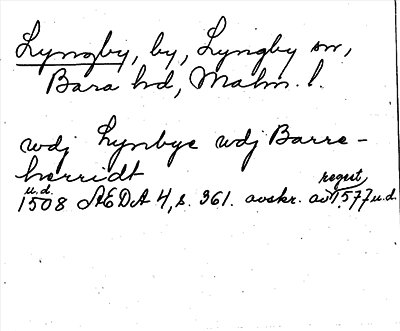 Lyngby, by, Lyngby sn,
Bara hd, Malm. l.
wdj Lynbye wdj Barre-
herridt
u.d. regest
1508 ÆDA 4, s. 361. avskr. av 1577 u.d.